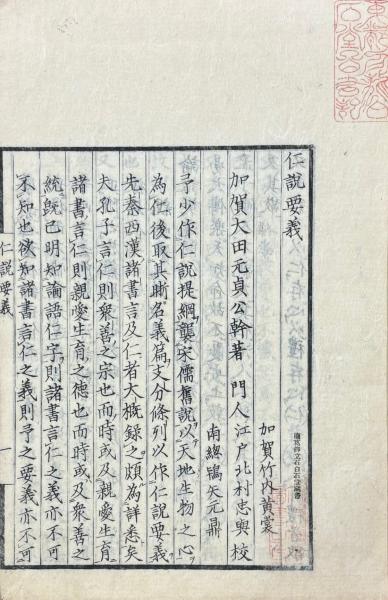 仁說要義
加賀竹內黃裳
加賀大田元貞公幹著 門人江戶北村忠輿校
南總鴇矢元鼎
予少作仁說提綱襲宋儒舊說以天地生物之心
為仁後取其晰名義篇支分條列以作仁說要義
先秦西漢諸書言及仁者大概錄之頗為詳悉矣
夫孔子言仁則衆善之宗也而時或及親愛生育
諸書言仁則親愛生育之德也而時或及衆善之
統既已明知論語仁字則諸書言仁之義亦不可
不知也欲知諸書言仁之義則予之要義亦不可
仁說要義 一